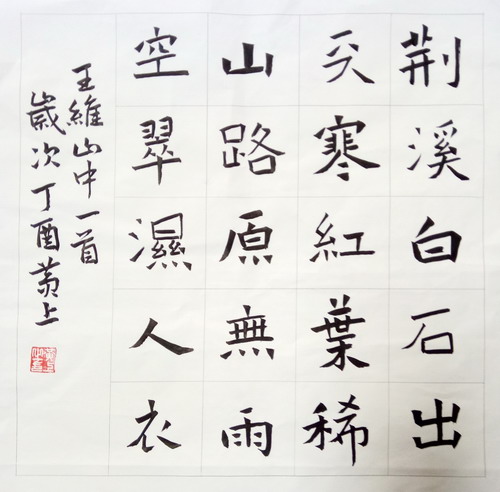 荆溪白石出
天寒紅葉稀
山路原無雨
空翠濕人衣
王維山中一首
歲次丁酉黃上